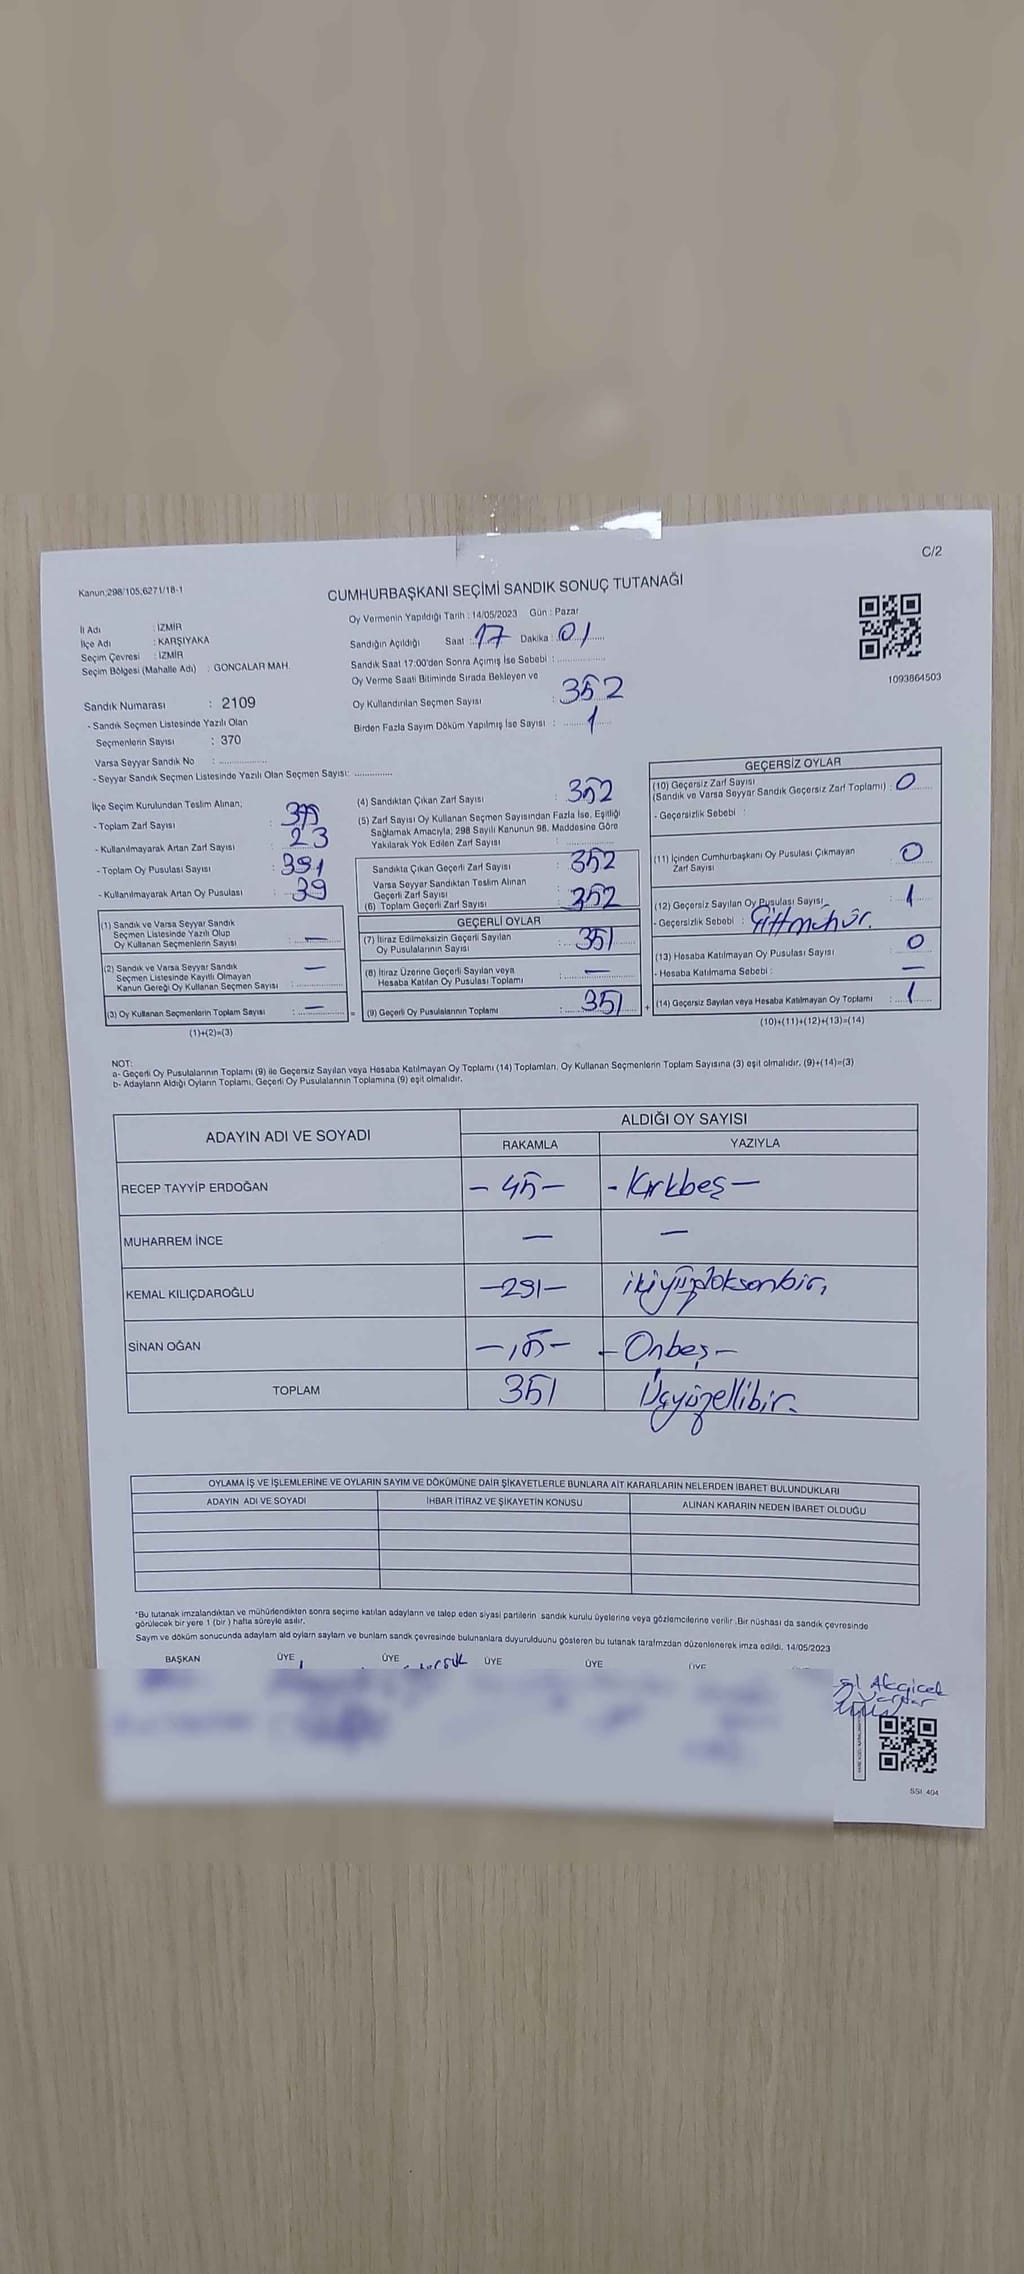 C/2
Kanun;298/105;6271/18-1
CUMHURBAŞKANI SEÇİMİ SANDIK SONUÇ TUTANAĞI
İl Adı : İZMİR
İlçe Adı : KARŞIYAKA
Seçim Çevresi : İZMİR
Seçim Bölgesi (Mahalle Adı) : GONCALAR MAH.
Oy Vermenin Yapıldığı Tarih : 14/05/2023 Gün : Pazar
Sandığın Açıldığı Saat : 17 Dakika : 01
Sandık Saat 17:00'den Sonra Açımış İse Sebebi :
Oy Verme Saati Bitiminde Sırada Bekleyen ve
Oy Kullandırılan Seçmen Sayısı : 352
Birden Fazla Sayım Döküm Yapılmış İse Sayısı : 1
1093864503
Sandık Numarası : 2109
- Sandık Seçmen Listesinde Yazılı Olan
Seçmenlerin Sayısı : 370
Varsa Seyyar Sandık No :
- Seyyar Sandık Seçmen Listesinde Yazılı Olan Seçmen Sayısı:
İlçe Seçim Kurulundan Teslim Alınan;
- Toplam Zarf Sayısı :
- Kullanılmayarak Artan Zarf Sayısı : 23
- Toplam Oy Pusulası Sayısı : 391
- Kullanılmayarak Artan Oy Pusulası : 39
(1) Sandık ve Varsa Seyyar Sandık
Seçmen Listesinde Yazılı Olup
Oy Kullanan Seçmenlerin Sayısı : —
(2) Sandık ve Varsa Seyyar Sandık
Seçmen Listesinde Kayıtlı Olmayan
Kanun Gereği Oy Kullanan Seçmen Sayısı : —
(3) Oy Kullanan Seçmenlerin Toplam Sayısı : —
(1)+(2)=(3)
(4) Sandıktan Çıkan Zarf Sayısı : 352
(5) Zarf Sayısı Oy Kullanan Seçmen Sayısından Fazla İse, Eşitliği
Sağlamak Amacıyla, 298 Sayılı Kanunun 98. Maddesine Göre
Yakılarak Yok Edilen Zarf Sayısı :
Sandıkta Çıkan Geçerli Zarf Sayısı : 352
Varsa Seyyar Sandıktan Teslim Alınan
Geçerli Zarf Sayısı :
(6) Toplam Geçerli Zarf Sayısı : 352
GEÇERLİ OYLAR
(7) İtiraz Edilmeksizin Geçerli Sayılan
Oy Pusulalarının Sayısı : 351
(8) İtiraz Üzerine Geçerli Sayılan veya
Hesaba Katılan Oy Pusulası Toplamı : —
(9) Geçerli Oy Pusulalarının Toplamı : 351
GEÇERSİZ OYLAR
(10) Geçersiz Zarf Sayısı
(Sandık ve Varsa Seyyar Sandık Geçersiz Zarf Toplamı) : 0
- Geçersizlik Sebebi :
(11) İçinden Cumhurbaşkanı Oy Pusulası Çıkmayan
Zarf Sayısı 0
(12) Geçersiz Sayılan Oy Pusulası Sayısı 1
- Geçersizlik Sebebi :
(13) Hesaba Katılmayan Oy Pusulası Sayısı 0
- Hesaba Katılmama Sebebi : —
(14) Geçersiz Sayılan veya Hesaba Katılmayan Oy Toplamı : 1
(10)+(11)+(12)+(13)=(14)
NOT:
a- Geçerli Oy Pusulalarının Toplamı (9) ile Geçersiz Sayılan veya Hesaba Katılmayan Oy Toplamı (14) Toplamları, Oy Kullanan Seçmenlerin Toplam Sayısına (3) eşit olmalıdır. (9)+(14)=(3)
b- Adayların Aldığı Oyların Toplamı, Geçerli Oy Pusulalarının Toplamına (9) eşit olmalıdır.
ADAYIN ADI VE SOYADI ALDIĞI OY SAYISI
RAKAMLA YAZIYLA
RECEP TAYYİP ERDOĞAN - 45 - - Kırkbeş -
MUHARREM İNCE — —
KEMAL KILIÇDAROĞLU - 291 - ikiyüzdoksanbir,
SİNAN OĞAN - 15 - - Onbeş -
TOPLAM 351 Üçyüzellibir.
OYLAMA İŞ VE İŞLEMLERİNE VE OYLARIN SAYIM VE DÖKÜMÜNE DAİR ŞİKAYETLERLE BUNLARA AİT KARARLARIN NELERDEN İBARET BULUNDUKLARI
ADAYIN ADI VE SOYADI İHBAR İTİRAZ VE ŞİKAYETİN KONUSU ALINAN KARARIN NEDEN İBARET OLDUĞU
*Bu tutanak imzalandıktan ve mühürlendikten sonra seçime katılan adayların ve talep eden siyasi partilerin sandık kurulu üyelerine veya gözlemcilerine verilir .Bir nüshası da sandık çevresinde
görülecek bir yere 1 (bir ) hafta süreyle asılır.
Sayım ve döküm sonucunda adaylam ald oylarn saylarn ve bunlam sandk çevresinde bulunanlara duyurulduunu gösteren bu tutanak tarafmzdan düzenlenerek imza edildi. 14/05/2023
BAŞKAN ÜYE ÜYE ÜYE ÜYE ÜYE
Akçiçek
SSI: 404